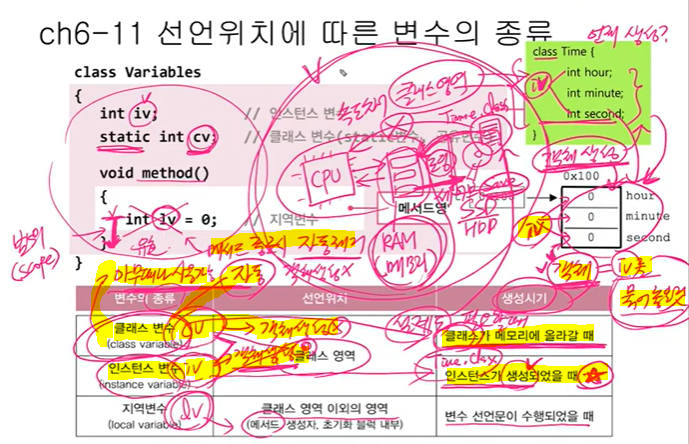 ch6-11 선언위치에 따른 변수의 종류
언제 생성?
class Time {
int hour;
int minute;
int second;
}
class Variables
{
int iv; // 인스턴스 변
static int cv; // 클래스 변수(static변수,
void method()
{
int lv = 0; // 지역변수
}
}
클래스영역
Time class
CPU
로딩
save
SSD
HDD
RAM
(메모리)
메서드영
객체 생성
0x100
0 hour
0 minute
0 second
iv
범위
(scope)
메서드 종료 자동제거
객체생성 X
아무때나 사용가능 자동
객체 = iv를
묶어놓은것
변수의 종류 선언위치 생성시기
클래스 변수
(class variable)
cv
객체생성 X
클래스 영역
클래스가 메모리에 올라갈 때
인스턴스 변수
(instance variable)
iv
객체생성 O
인스턴스가 생성되었을 때
지역변수
(local variable)
lv
클래스 영역 이외의 영역
(메서드, 생성자, 초기화 블럭 내부)
변수 선언문이 수행되었을 때